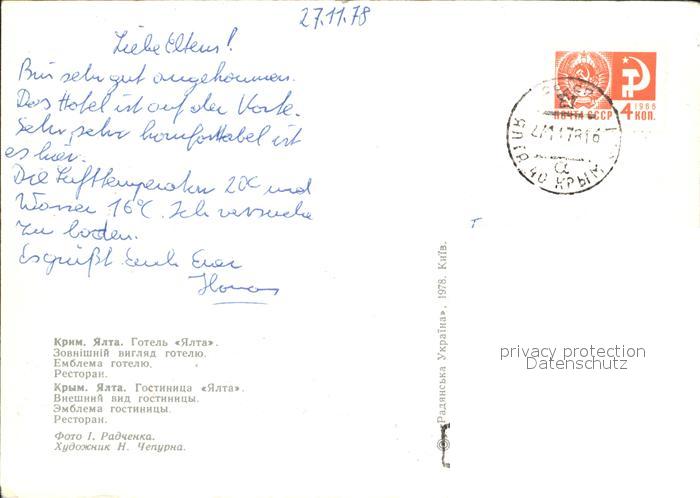 27.11.78
Liebe Eltern!
Bin sehr gut angekommen.
Das Hotel ist auf der Karte.
Sehr, sehr komfortabel ist
es hier.
Die Lufttemperatur 20C und
Wasser 16°C. Ich versuche
zu baden.
Es grüßt Euch Euer
ПОЧТА СССР
1966
4 КОП.
ЯЛТА 40 КРЫМ
Крим. Ялта. Готель «Ялта».
Зовнішній вигляд готелю.
Емблема готелю.
Ресторан.
Крым. Ялта. Гостиница «Ялта».
Внешний вид гостиницы.
Эмблема гостиницы.
Ресторан.
Фото І. Радченка.
Художник Н. Чепурна.
«Радянська Україна», 1978. Київ.
т
privacy protection
Datenschutz